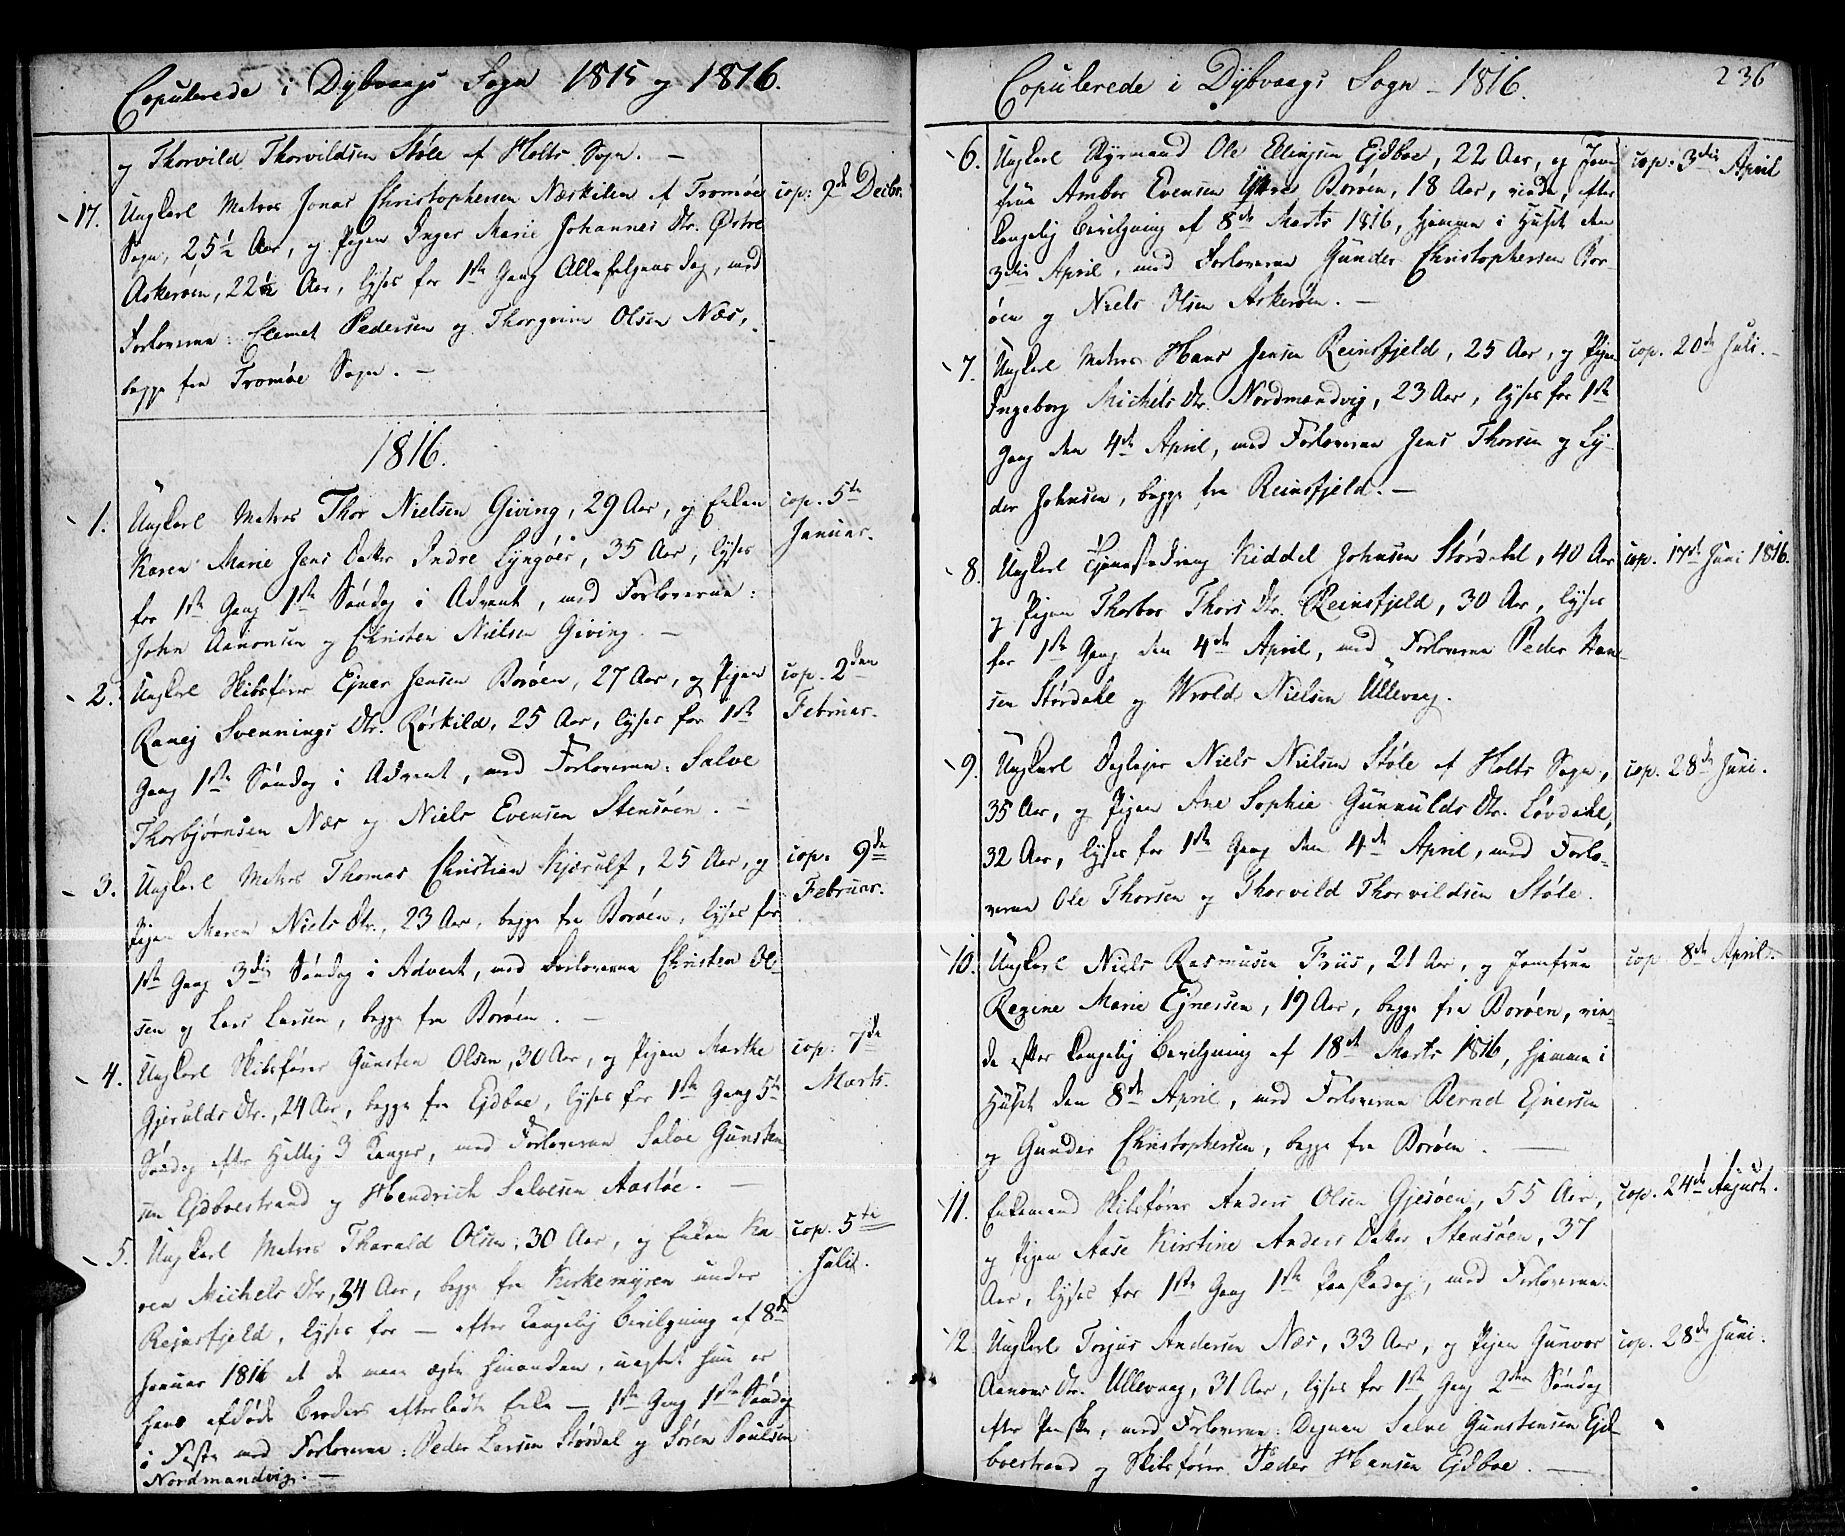 Copulerede i Dybvaags Sogn 1815 og 1816.
og Thorvild Thorvildsen Støle af Holts Sogn. —
17. Ungkarl Matros Jonas Christophersen Næskilen af Tromøe cop: 2de Decbr.
Sogn, 25½ Aar, og Pigen Inger Marie Johannes Dtr. Østre
Askerøen, 22½ Aar, lyses for 1ste Gang Allehelgens dag, med
Forloverne: Clemet Pedersen og Thorgrim Olsen Næs,
begge fra Tromøe Sogn. —
1816.
1. Ungkarl Matros Thor Nielsen Giving, 29 Aar, og Enken cop. 5te
Karen Marie Jens Datter Indre Lyngøer, 35 Aar, lyses Januar.
for 1ste Gang 1ste Søndag i Advent, med Forloverne:
John Aanonsen og Christen Nielsen Giving. —
2. Ungkarl Skibsfører Ejner Jensen Borøen, 27 Aar, og Pigen cop. 2den
Ranej Svennings Dtr. Rørkild, 25 Aar, lyses for 1ste Februar.
Gang 1ste Søndag i Advent, med Forloverne: Salve
Thorbjørnsen Næs og Niels Evensen Stensøen. —
3. Ungkarl Matros Thomas Christian Kjærulf, 25 Aar, og cop. 9de
Pigen Maren Niels Dtr., 23 Aar, begge fra Borøen, lyses for Februar.
1ste Gang 3die Søndag i Advent, med Forloverne Christen Ol-
sen og Lars Larsen, begge fra Borøen. —
4. Ungkarl Skibsfører Gunsten Olsen, 30 Aar, og Pigen Marthe cop. 7de
Gjerulds Dtr., 24 Aar, begge fra Ejdboe, lyses for 1ste Gang 5te Marts.
Søndag efter Hellig 3 Konger, med Forloverne Salve Gunsten-
sen Ejdboestrand og Hendrich Salvesen Aastøe. —
5. Ungkarl Matros Tharald Olsen, 30 Aar, og Enken Ka cop. 5te
ren Michels Dtr, 34 Aar, begge fra Kirkemyren under Juli.
Rejnsfjeld, lyses for — efter Kongelig Bevilgning af 8de
Januar 1816 at de maa ægte hinanden, uagtet hun er
hans afdøde Broders efterladte Enke — 1ste Gang 1ste Søndag
i Faste med Forloverne: Peder Larsen Størdal og Søren Poulsen
Nordmandvig. —
Copulerede i Dybvaags Sogn – 1816. 236
6. Ungkarl Styrmand Ole Ellingsen Ejdboe, 22 Aar, og Jom cop. 3die April
frue Ambor Evensen Borøen, 18 Aar, viede, efter
Kongelig Bevilgning af 8de Marts 1816, hjemme i Huset den
3die April, med Forloverne Gunder Christophersen Bor-
øen og Niels Olsen Askerøen. —
7. Ungkarl Matros Hans Jensen Reinsfjeld, 25 Aar, og Pigen cop. 20de Juli. —
Ingeborg Michels Dtr. Nordmandvig, 23 Aar, lyses for 1ste
Gang den 4de April, med Forloverne Jens Thorsen og Ly-
der Johnsen, begge fra Reinsfjeld. —
8. Ungkarl Tjenestedreng Kiddel Johnsen Størdahl, 40 Aar cop. 17de Juni 1816.
og Pigen Thorbor Thors Dtr. Reinsfjeld, 30 Aar, lyses
for 1ste Gang den 4de April, med Forloverne Peder Han-
sen Størdahl og Wrold Nielsen Ullevaag.
9. Ungkarl Niels Nielsen Støle af Holts Sogn, cop. 28de Juni.
35 Aar, og Pigen Ane Sophie Gunnulds Dtr. Løvdahl,
32 Aar, lyses for 1ste Gang den 4de April, med Forlo-
verne Ole Thorsen og Thorvild Thorvildsen Støle.
10. Ungkarl Niels Rasmusen Friis, 21 Aar, og Jomfrue cop. 8de April.
Regine Marie Ejnersen, 19 Aar, begge fra Borøen, vie-
de efter Kongelig Bevilgning af 18de Marts 1816, hjemme i
Huset den 8de April, med Forloverne Bernd Ejnersen
og Gunder Christophersen, begge fra Borøen. —
11. Enkemand Skibsfører Anders Olsen Gjesøen, 55 Aar, cop. 24de August.
og Pigen Aase Kirstine Anders Datter Stensøen, 37
Aar, lyses for 1ste Gang 1ste Paaskedag, med Forloverne.
12. Ungkarl Torjus Andersen Næs, 33 Aar, og Pigen Gunvor cop. 28de Juni.
Aanons Dtr. Ullevaag, 31 Aar, lyses for 1ste Gang 2den Søndag
efter Paaske, med Forloverne: Degnen Salve Gunstensen Ejd-
boestrand og Skibsfører Peder Hansen Ejdboe. —